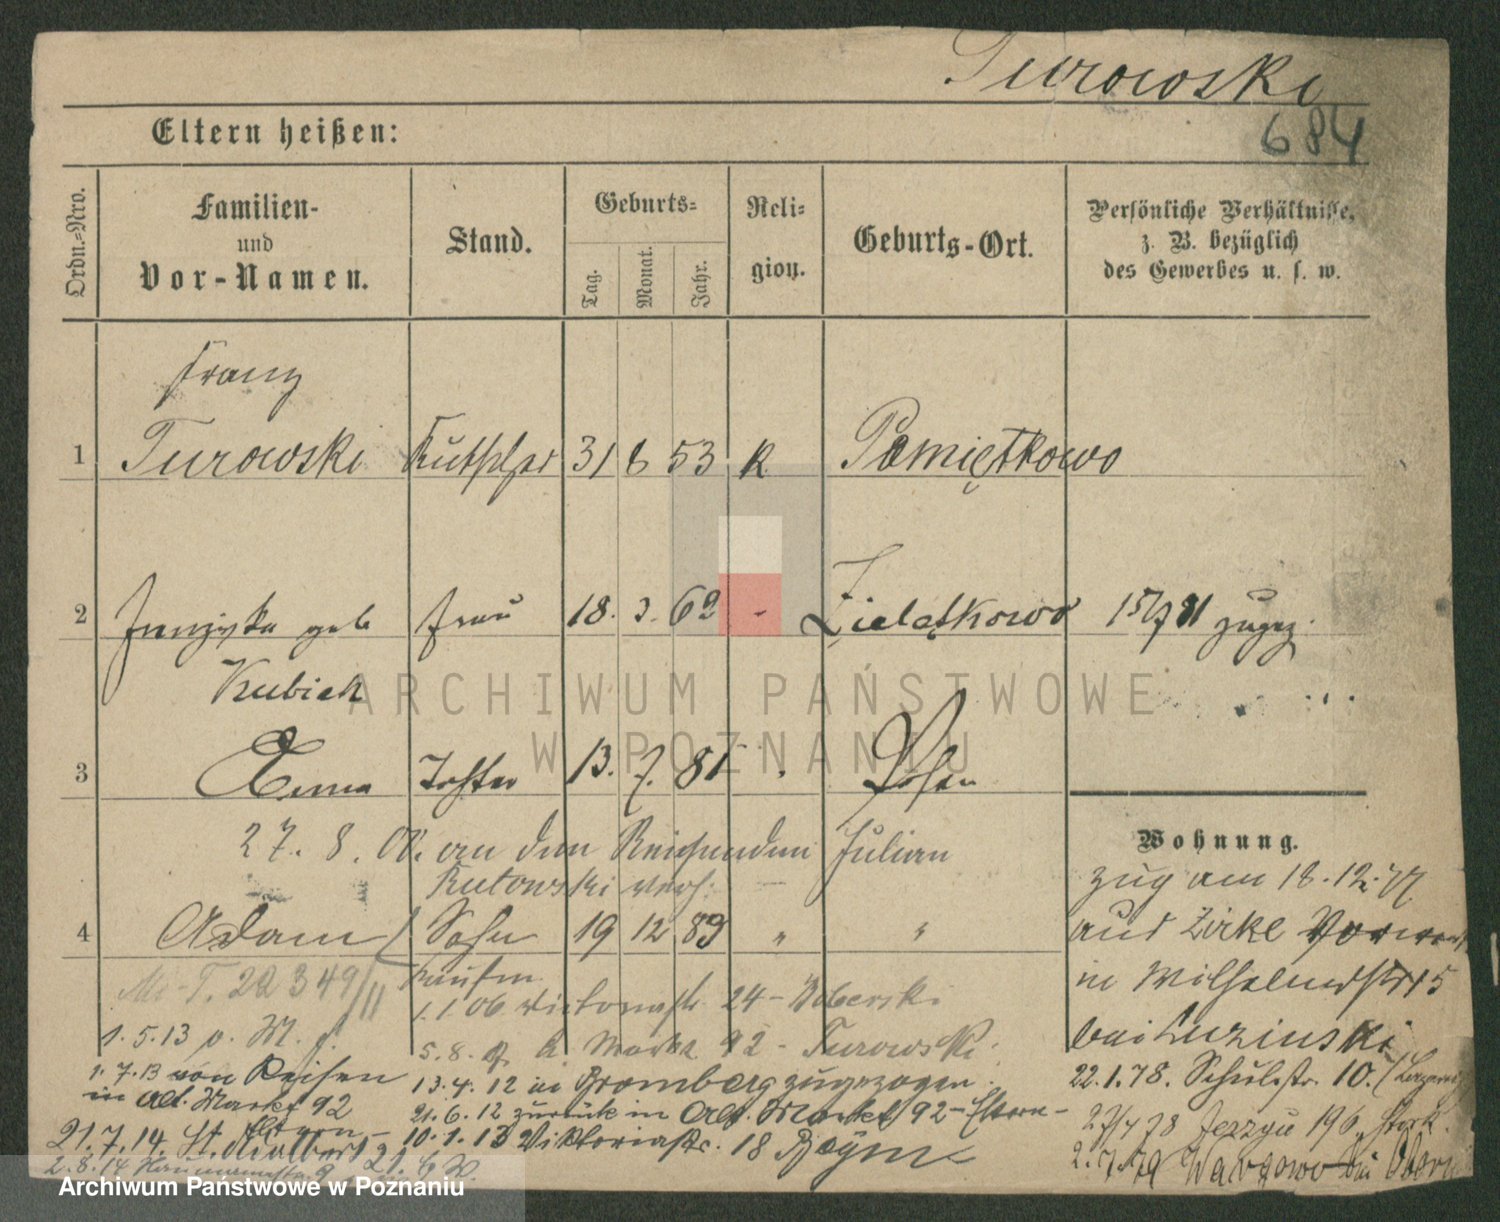 Turowski
684
Eltern heißen:
Ordn.-Nro.
Familien-
und
Vor-Namen.
Stand.
Geburts-
Tag.
Monat.
Jahr.
Reli-
gion.
Geburts-Ort.
Persönliche Verhältnisse,
z. B. bezüglich
des Gewerbes u. s. w.
Franz
1 Turowski Kutscher 31 8 53 K Pamiątkowo
2 Franziska geb Frau 18. 3. 62 - Zielątkowo 15/7 81 zugez.
Kubiak
3 Anna Tochter 13. 7. 81 Posen
27. 8. 08. an den Reisenden Julian
Rutowski verh.
4 Adam Sohn 19 12 89 " "
Kaufm.
1.1 06 Victoriastr. 24 - Boberski
1.5.13 v. M.
5.8. A. Markt 92 - Turowski
1.7.13 von Reisen
in Alt. Markt 92
Eltern -
13.4.12 in Bromberg zugezogen.
21.6.12 zurück in Alt. Markt 92 - Eltern -
21.7.14. St. Adalbert 10.1.13 Viktoriastr. 18
2.8.14
Wohnung.
Zug am 18.12.77
aus Zirke
in Wilhelmstr 15
bei Luzinski
22.1.78. Schulstr. 10.
27/4 78 Jerzyu 196.
2.7.79 bei
ARCHIWUM PAŃSTWOWE
W POZNANIU
Archiwum Państwowe w Poznaniu